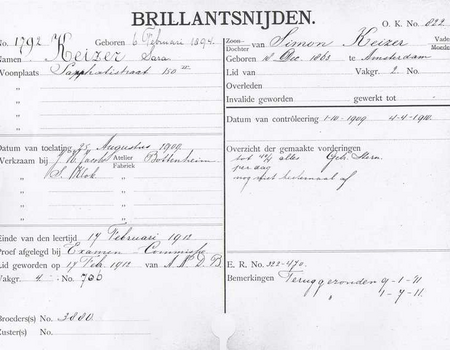 BRILLANTSNIJDEN.
O. K. No. 822
No. 1792 Geboren 6 Februari 1894.
Namen Keizer Sara
Woonplaats Sarphatistraat 180
"
"
"
"
Datum van toelating 25 Augustus 1909
Werkzaam bij J. W. Jacobs Atelier Fabriek Bottenheim
" S. Blok
"
"
"
Einde van den leertijd 17 Februari 1912
Proef afgelegd bij Examen-Commissie
Lid geworden op 17 Feb. 1912 van A. N. D. B.
Vakgr. 4 - No. 733
Broeders(s) No. 3880
Zuster(s) No.
Zoon- Dochter van Simon Keizer Vader
Geboren 2 Dec. 1863 te Amsterdam
Lid van Vakgr. 2 No.
Overleden
Invalide geworden gewerkt tot
Datum van controleering 1-10-1909 4-4-1910
Overzicht der gemaakte vorderingen
tot alles Geh. Stern.
per dag
nog niet af
E. R. No. 322-470.
Bemerkingen Teruggezonden 9-1-11
" 1-7-11.